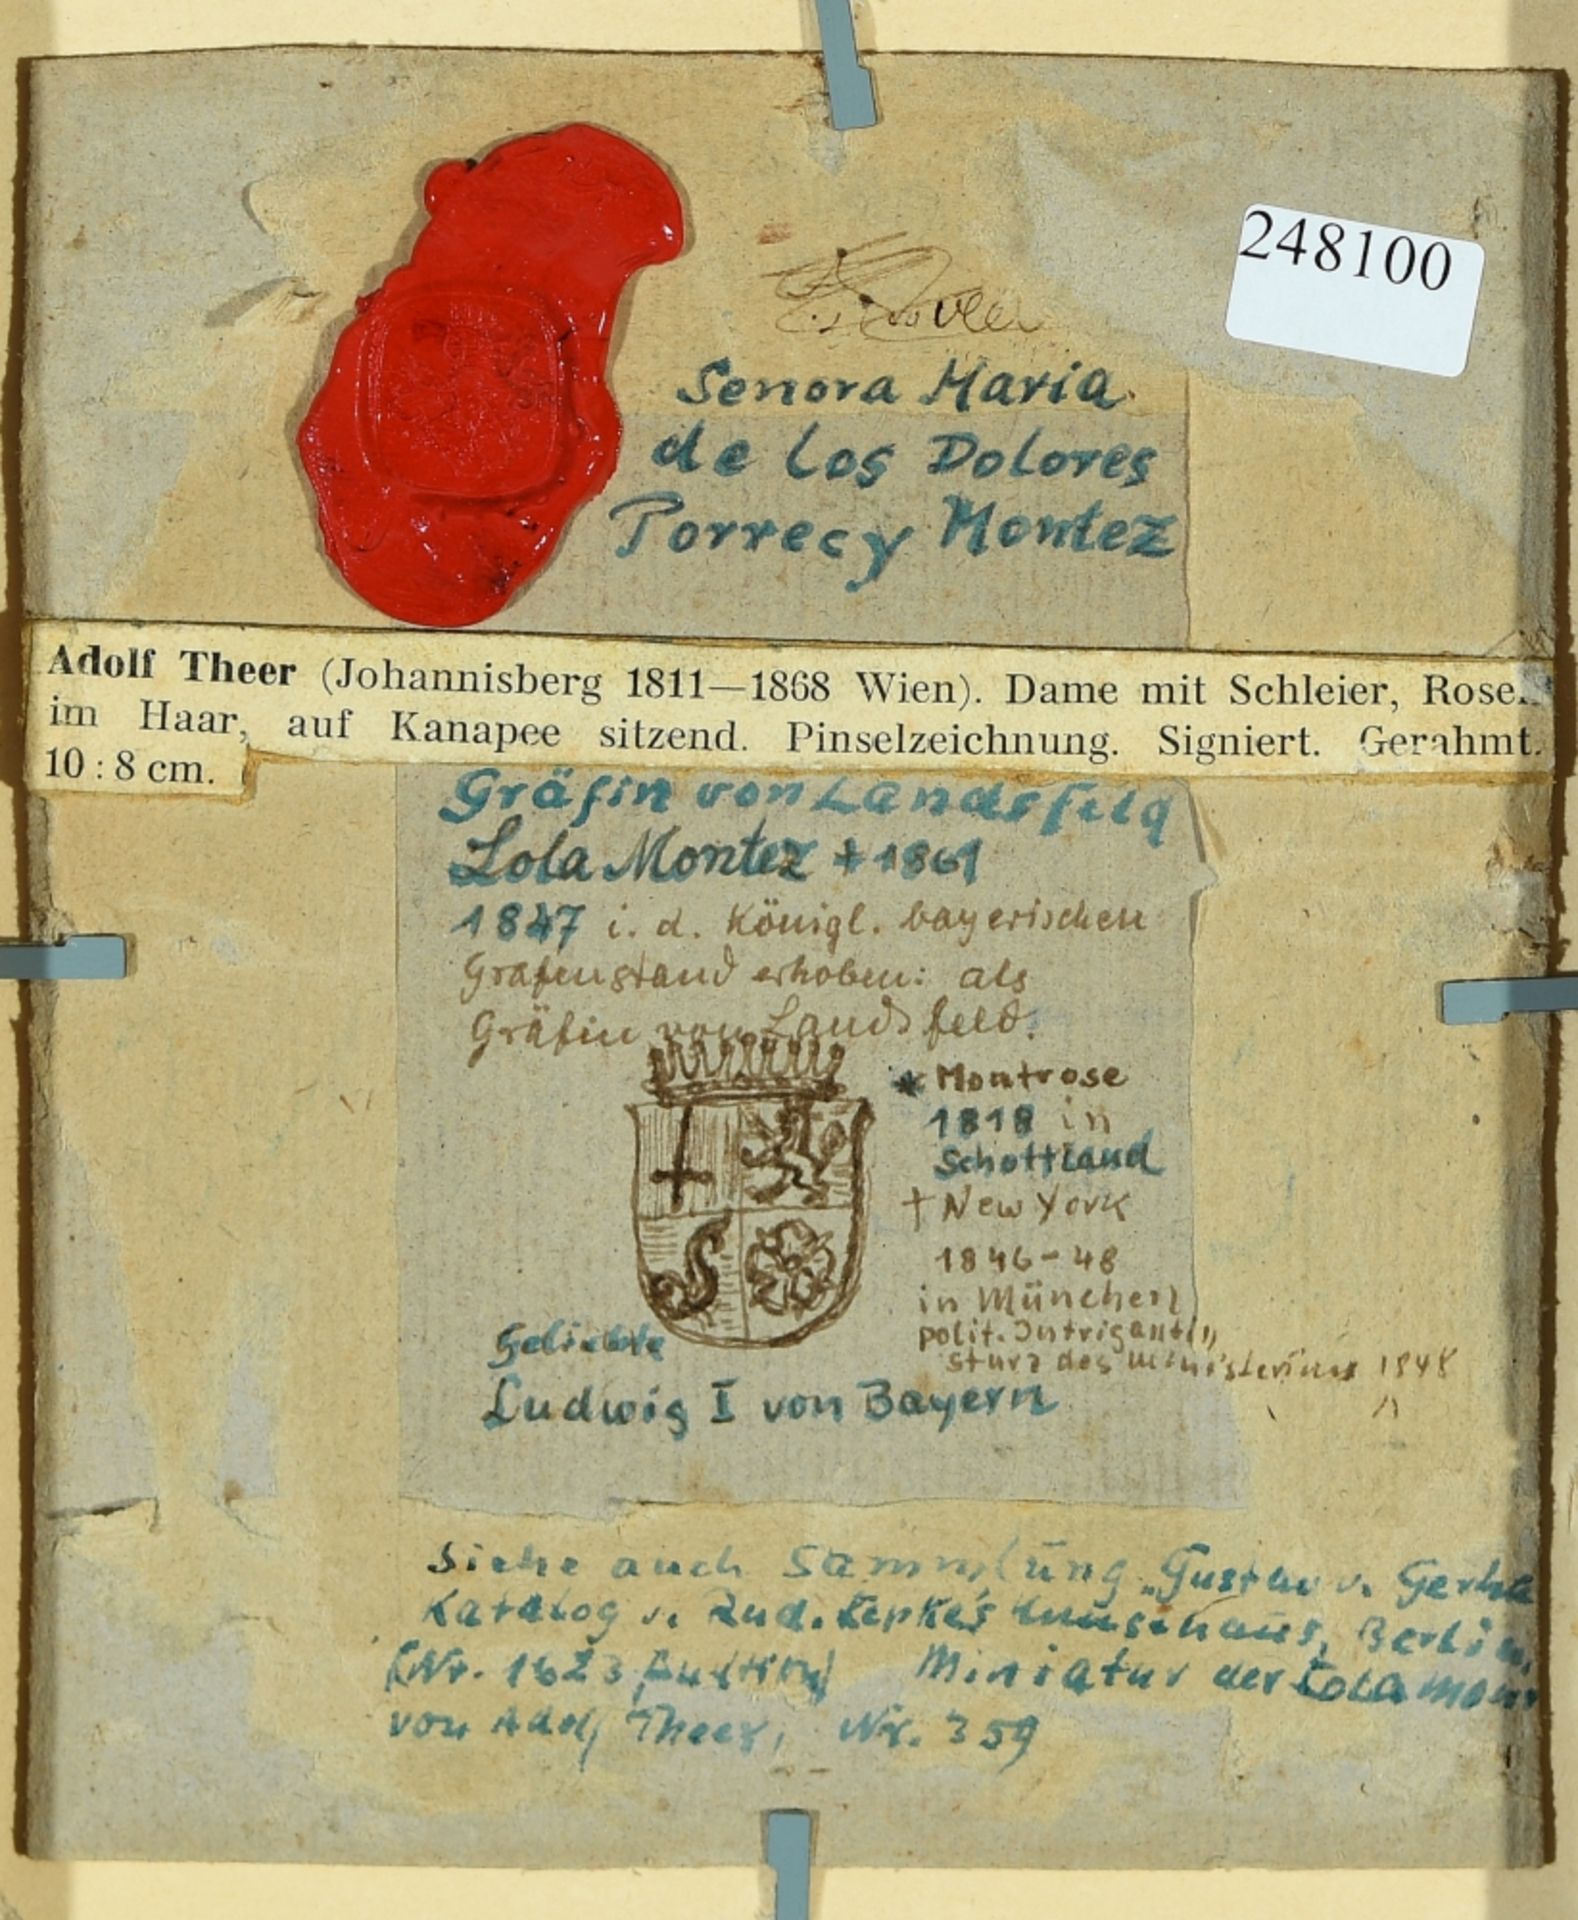 248100
Senora Maria
de los Dolores
Porrecy Montez
Adolf Theer (Johannisberg 1811—1868 Wien). Dame mit Schleier, Rose
im Haar, auf Kanapee sitzend. Pinselzeichnung. Signiert. Gerahmt.
10 : 8 cm.
Gräfin von Landsfeld
Lola Montez + 1861
1847 i. d. Königl. bayerischen
Grafenstand erhoben: als
Gräfin von Landsfeld.
* Montrose
1818 in
Schottland
† New York
1846-48
in München
polit. Intrigantin
Sturz des Ministeriums 1848
Geliebte
Ludwig I von Bayern
Siehe auch Sammlung „Gustav v. Gerha
Katalog v. Rud. Lepke's Kunsthaus, Berlin,
(Nr. 1623 Auktion) Miniatur der Lola Mon
von Adolf Theer, Nr. 359